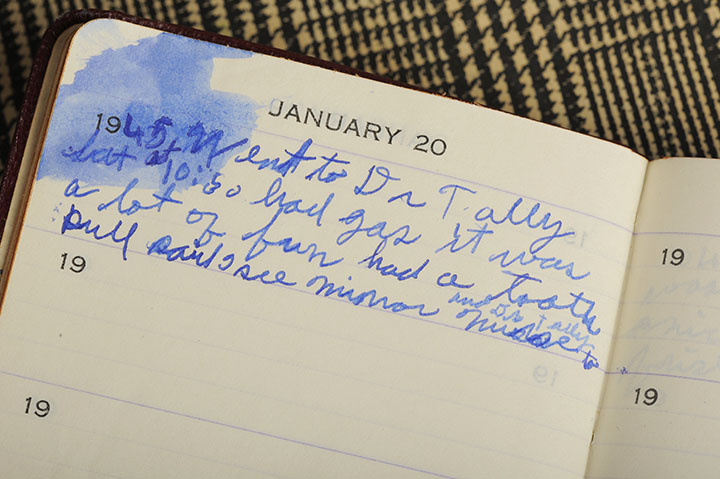 JANUARY 20
1945 Went to Dr Tally
Sat at 10:30 had gas it was
a lot of fun had a tooth
pull said see mirror nurse
and Dr Tally to
19
19
19
19
19
19